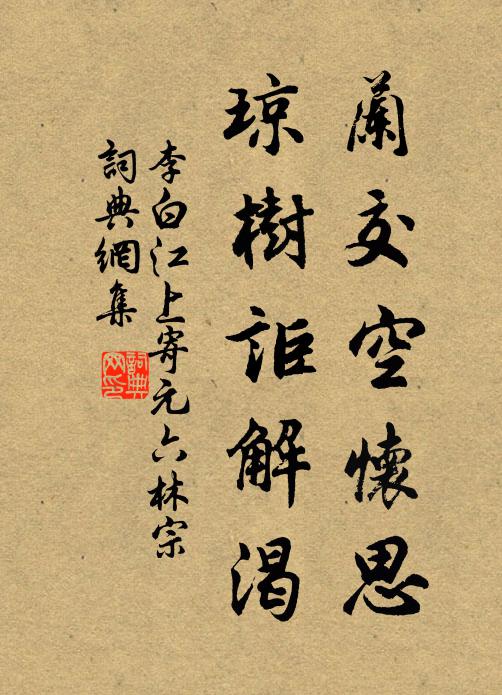 蘭交空懷思
琼樹詎解渴
李白江上寄元六林宗
詞典網集
詞典网印